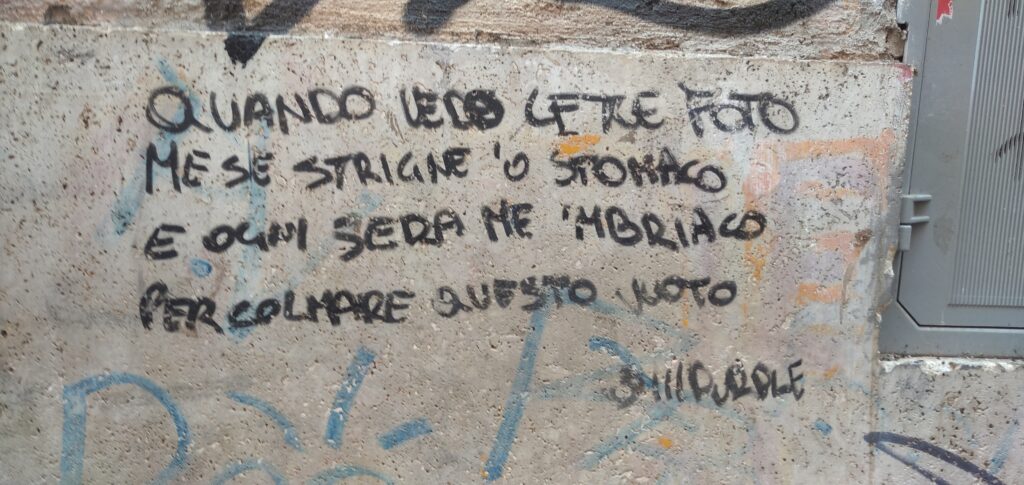 QUANDO VEDO LE TUE FOTO
ME SE STRIGNE 'O STOMACO
E OGNI SERA ME 'MBRIACO
PER COLMARE QUESTO VUOTO